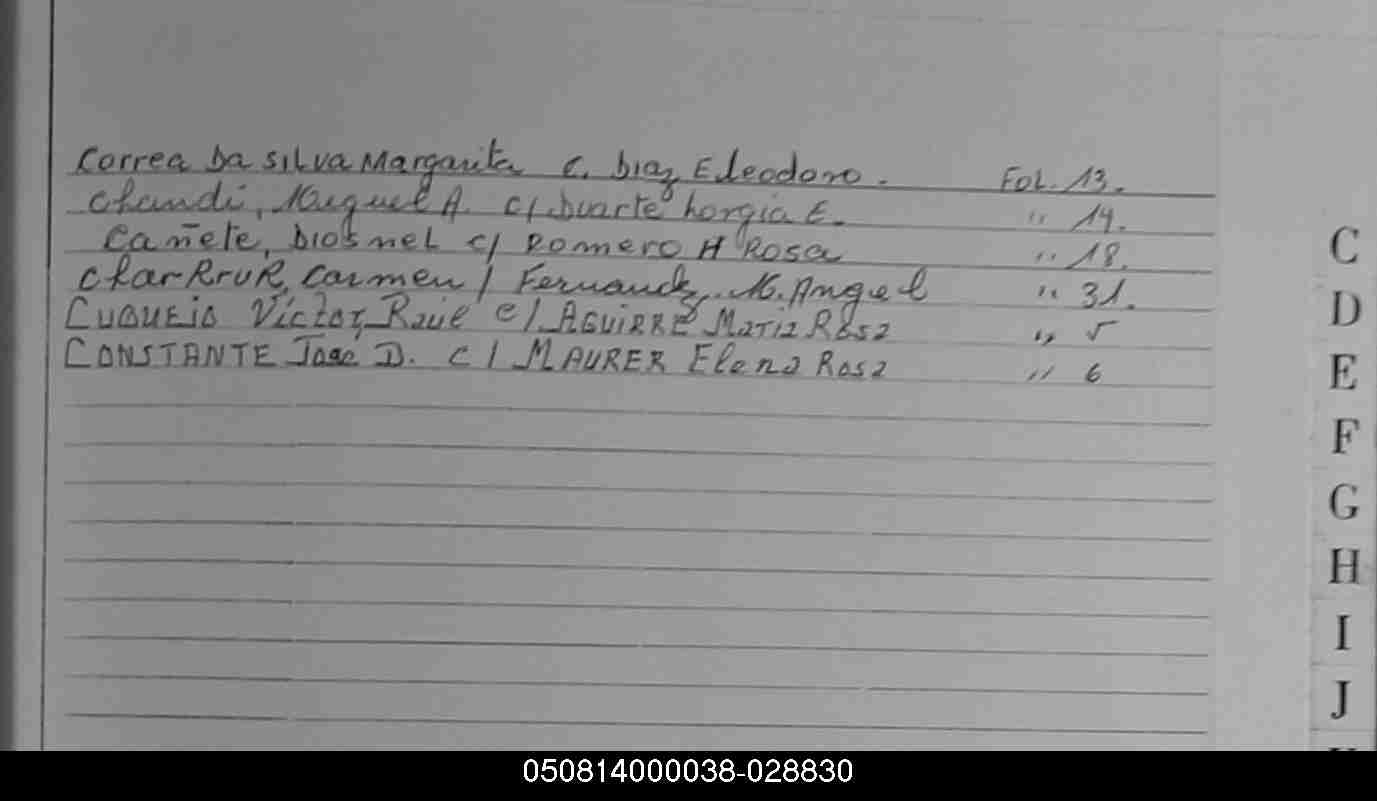 Correa Da Silva Margarita C. Diaz Eleodoro. Fol. 13.
Chandi, Miguel A. c/ Duarte horgia E. " 14.
Cañete, Diosnel c/ Romero H Rosa " 18.
Carmen / Fernandz. M. Angel " 31.
Victor Raúl c/ AGUIRRE Maria Rosa " 5
CONSTANTE Jose D. c/ MAURER Elena Rosa " 6
C
D
E
F
G
H
I
J
050814000038-028830